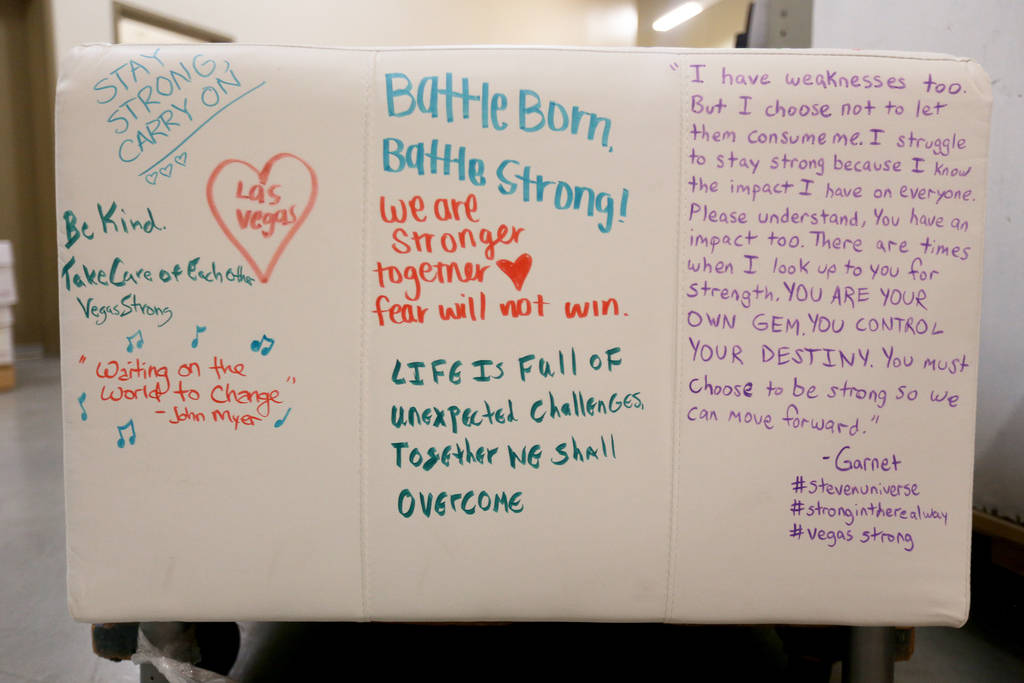 STAY
STRONG,
CARRY ON
Las
Vegas
Be Kind.
Take Care of Each Other
Vegas Strong
"Waiting on the
World to Change"
- John Myer
Battle Born,
Battle Strong!
we are
stronger
together
fear will not win.
LIFE Is Full OF
unexpected challenges,
Together we shall
OVERCOME
"I have weaknesses too.
But I choose not to let
them consume me. I struggle
to stay strong because I know
the impact I have on everyone.
Please understand, You have an
impact too. There are times
when I look up to you for
strength. YOU ARE YOUR
OWN GEM. YOU CONTROL
YOUR DESTINY. You must
choose to be strong so we
can move forward."
- Garnet
#stevenuniverse
#strongintherealway
#vegas strong